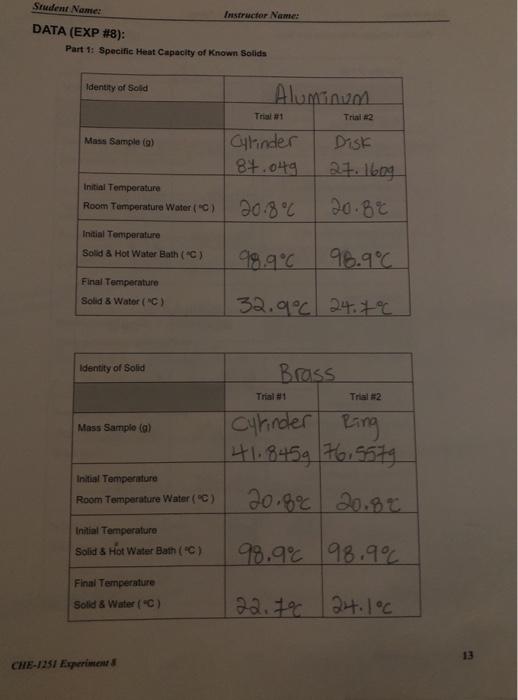 Student Name:
Instructor Name:
DATA (EXP #8):
Part 1: Specific Heat Capacity of Known Solids
Identity of Solid
Aluminum
Trial #1
Trial #2
Mass Sample (g)
Cylinder
Disk
87.04g
27.160g
Initial Temperature
Room Temperature Water (°C)
20.8°C
20.8°C
Initial Temperature
Solid & Hot Water Bath (°C)
98.9°C
98.9°C
Final Temperature
Solid & Water (°C)
32.9°C
24.7°C
Identity of Solid
Brass
Trial #1
Trial #2
Mass Sample (g)
Cylinder
Ring
41.845g
76.557g
Initial Temperature
Room Temperature Water (°C)
20.8°C
20.8°C
Initial Temperature
Solid & Hot Water Bath (°C)
98.9°C
98.9°C
Final Temperature
Solid & Water (°C)
22.7°C
24.1°C
CHE-1251 Experiment 8
13